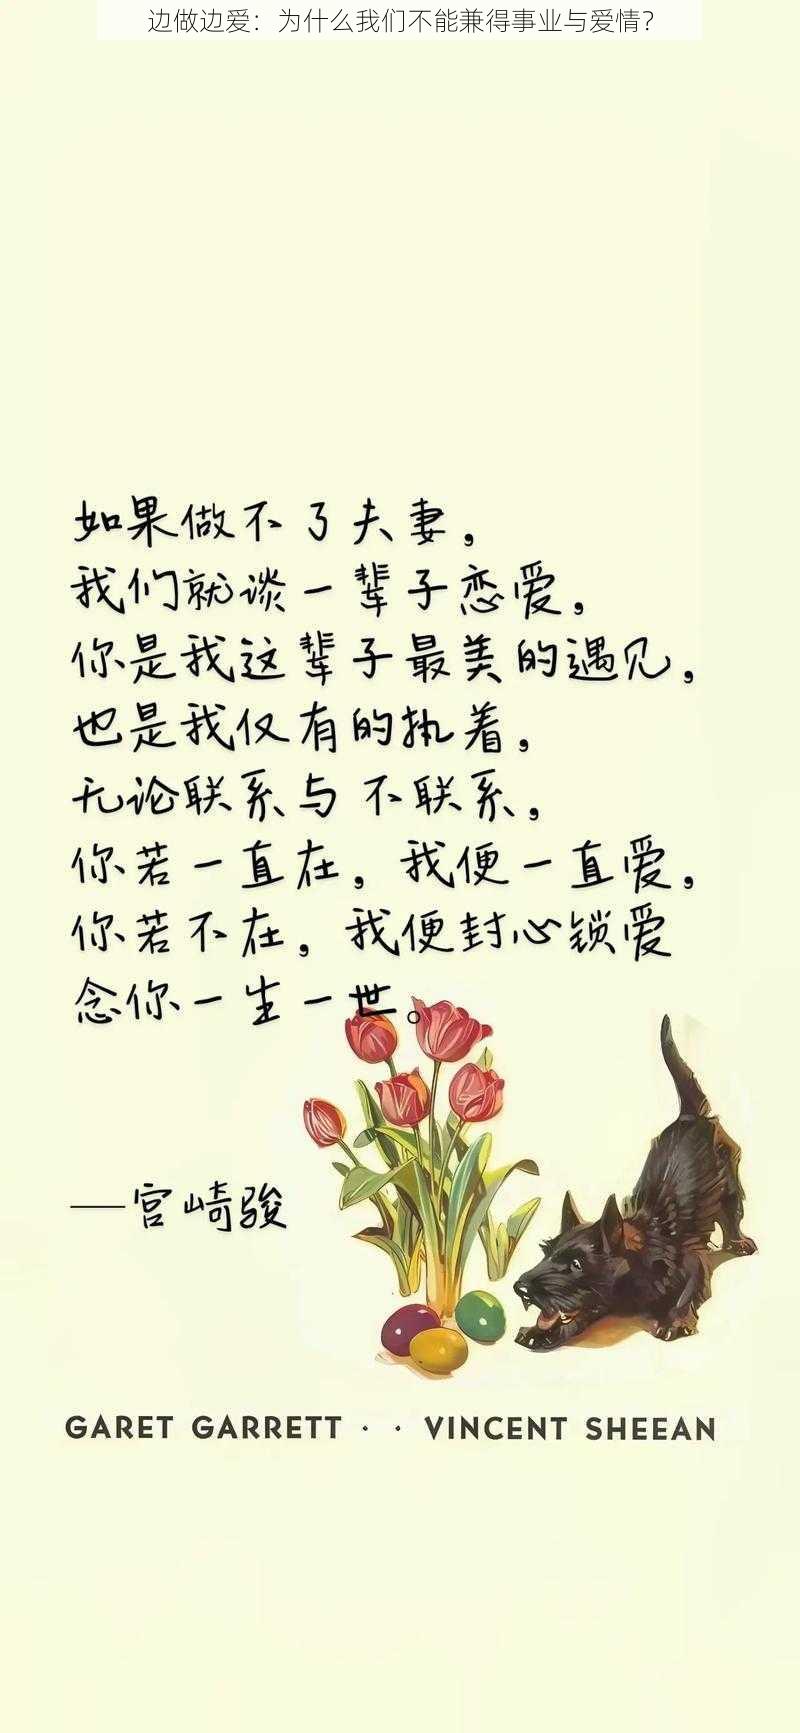 边做边爱：为什么我们不能兼得事业与爱情？
如果做不了夫妻，
我们就谈一辈子恋爱，
你是我这辈子最美的遇见，
也是我仅有的执着，
无论联系与不联系，
你若一直在，我便一直爱，
你若不在，我便封心锁爱
念你一生一世。
——宫崎骏
GARET GARRETT · · VINCENT SHEEAN